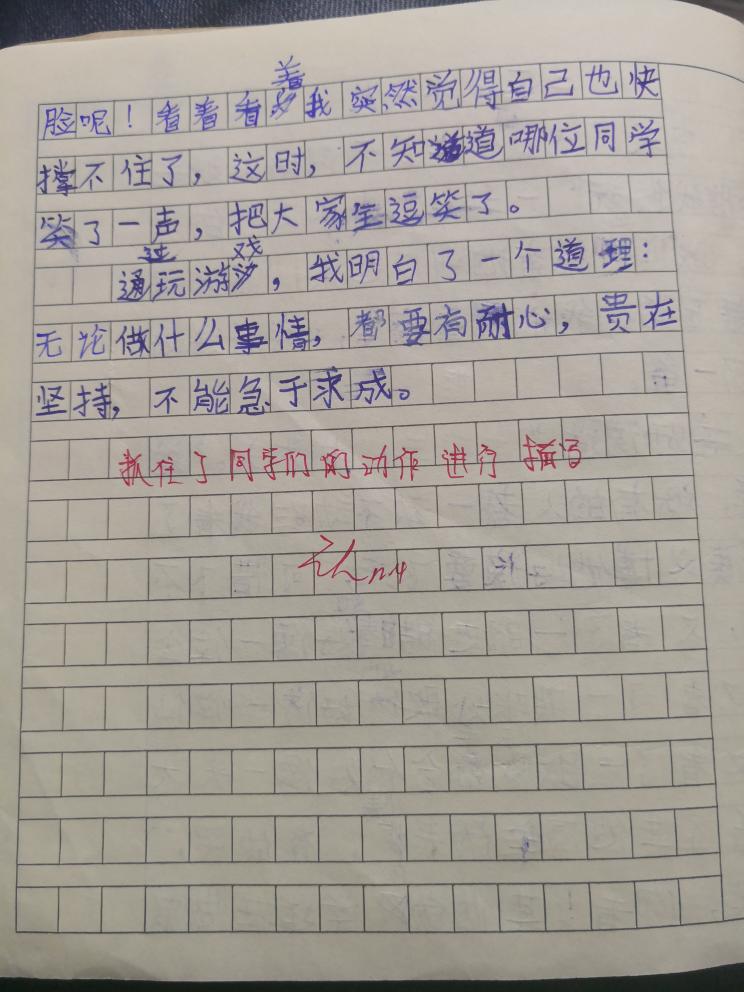 脸呢！看着看着我突然觉得自己也快
撑不住了，这时，不知道哪位同学
笑了一声，把大家全逗笑了。
通过玩游戏，我明白了一个道理：
无论做什么事情，都要有耐心，贵在
坚持，不能急于求成。
抓住了同学们的动作进行描写